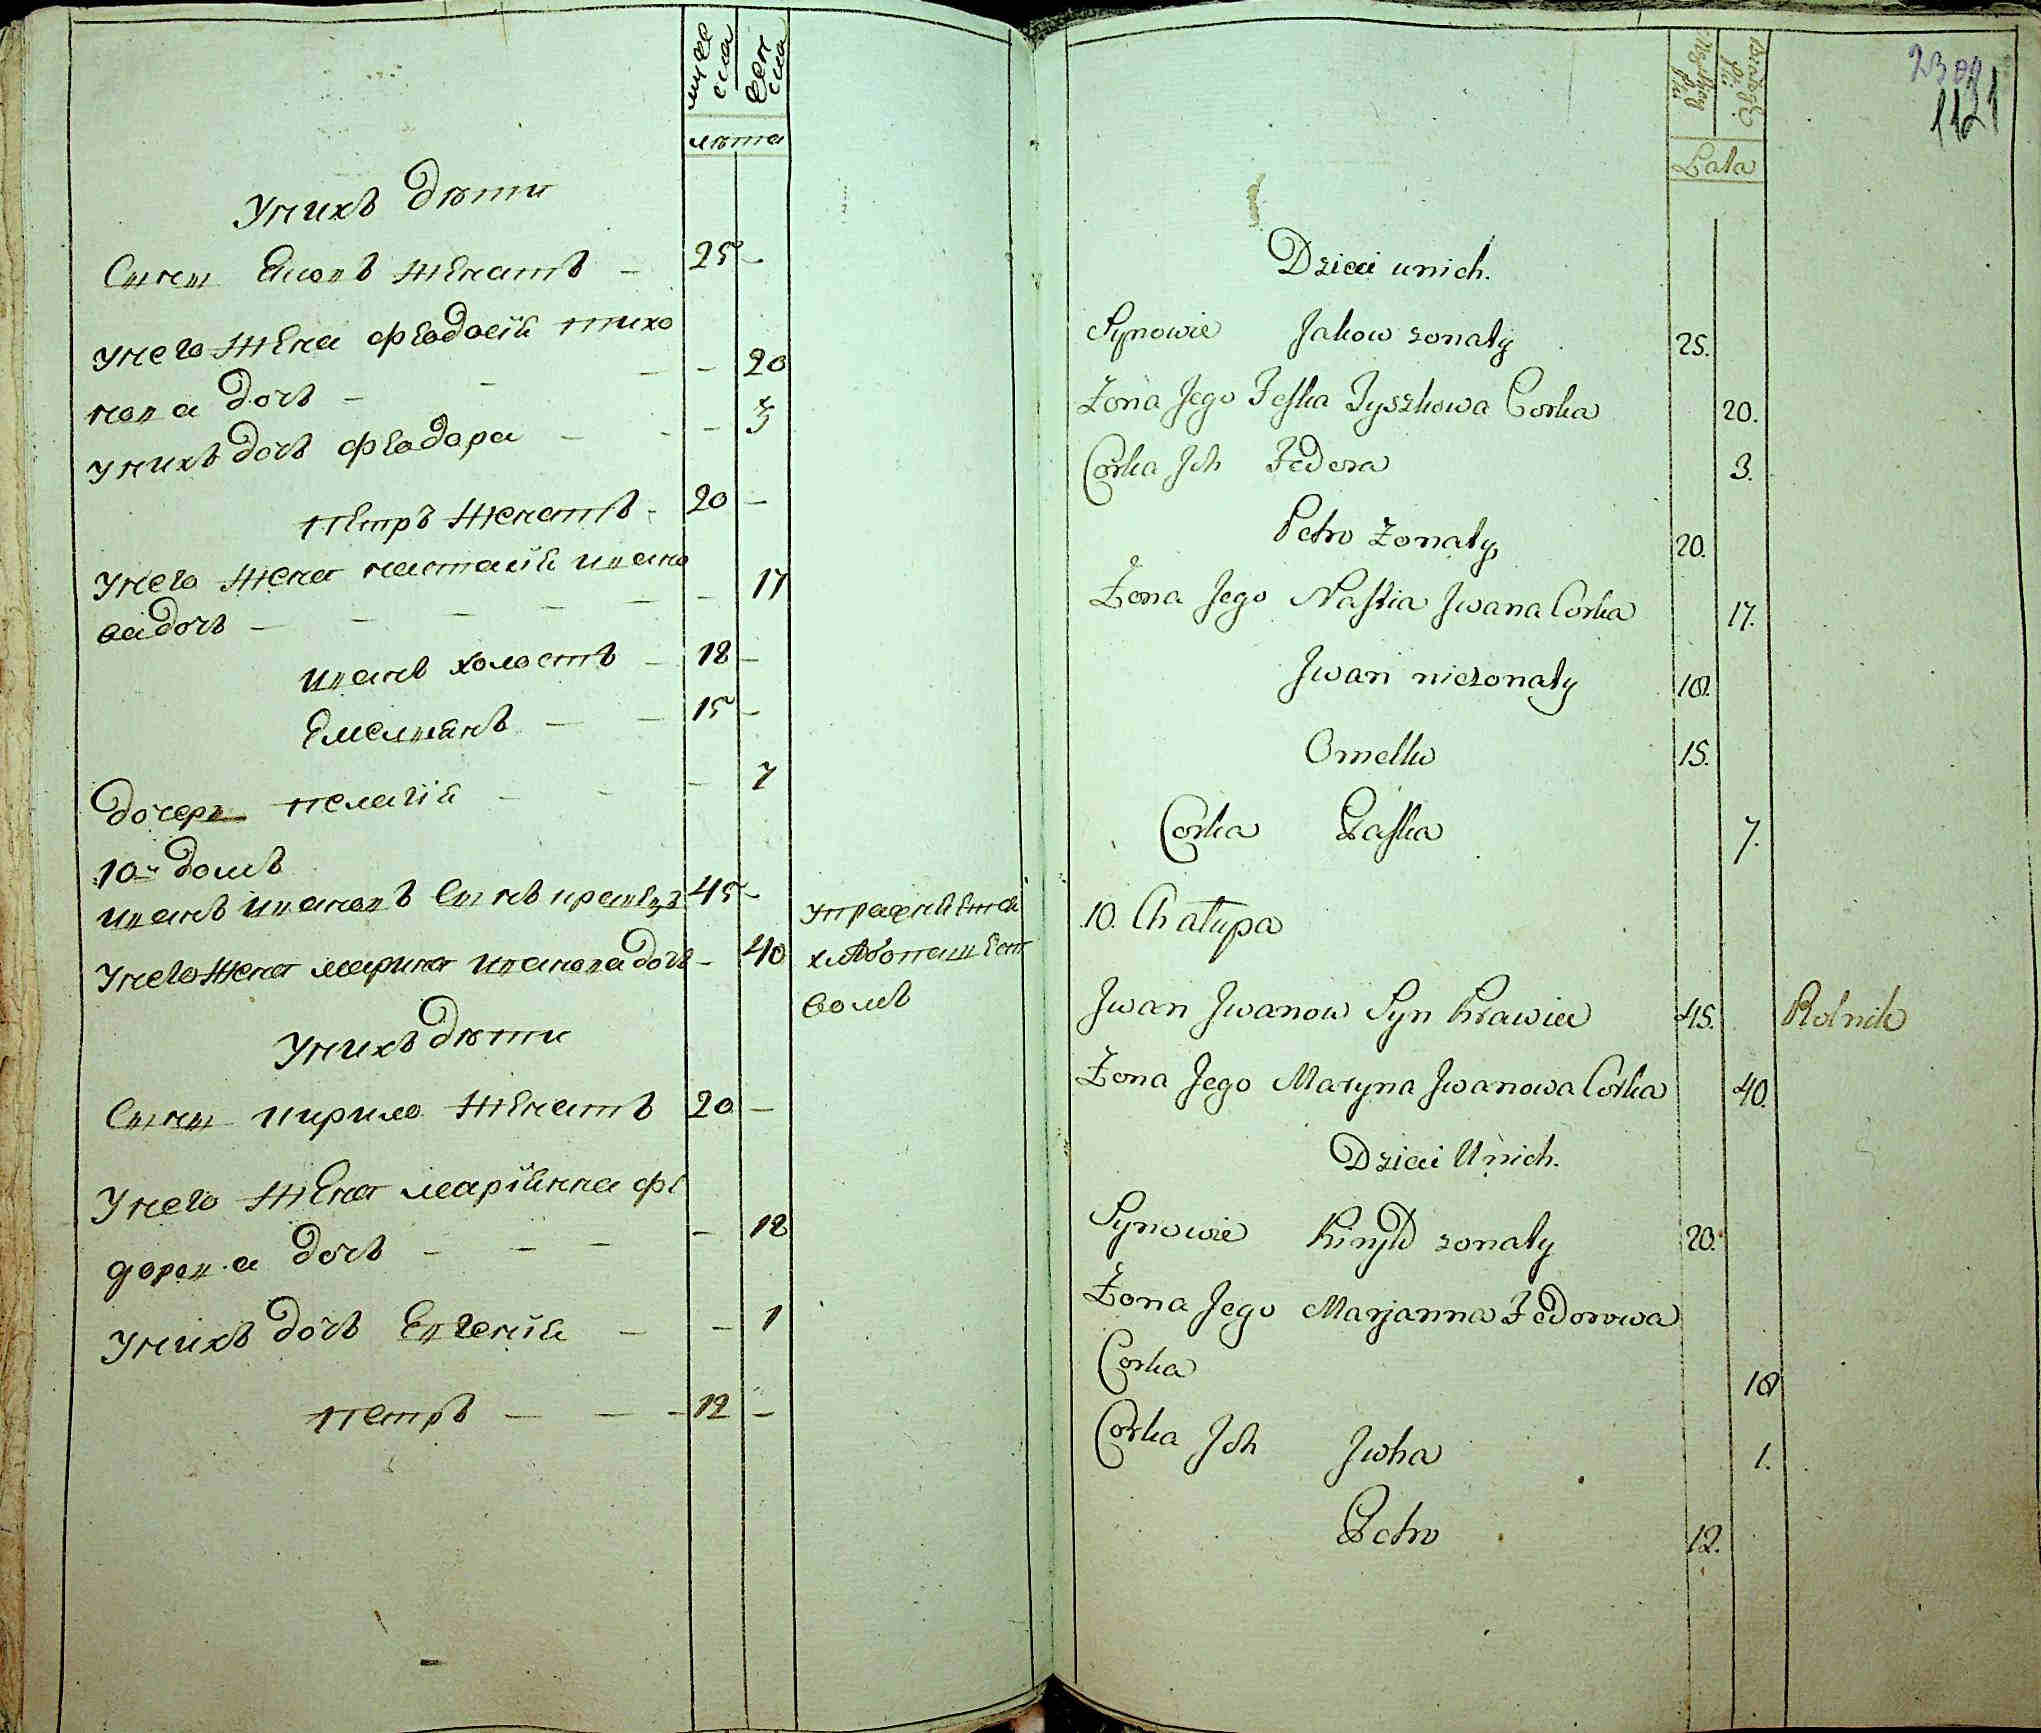 муже
ска
жен
ска
лѣта
У нихъ дѣти
Сыны Яковъ женатъ - 25 -
У него жена Феодосія Тихо
нова дочь - - - - 20
У нихъ дочь Феодора - - - 3
Петръ женатъ - 20 -
У него жена Настасія Ивано
ва дочь - - - - - - 17
Иванъ холостъ - 18 -
Емельянъ - - 15 -
Дочерь Пелагія - - - 7
10й домъ
Иванъ Ивановъ сынъ кравецъ 45 - упражняется
У него жена Марина Иванова дочь - 40 хлебопашест
вомъ
У нихъ дѣти
Сыны Кирило женатъ 20 -
У него жена Маріянна Фе
дорова дочь - - - - 18
У нихъ дочь Евгенія - - 1
Петръ - - - 12 -
2309
1121
Męzkey
Płci
Białey
Płci
Lata
Dzieci unich.
Synowie Jakow zonaty 25.
Żona Jego Feśka Tyszkowa Corka 20.
Corka Jch Fedora 3.
Petro Zonaty 20.
Żona Jego Nastia Jwana Corka 17.
Jwan niezonaty 18.
Omelko 15.
Corka Paśka 7.
10. Chałupa
Jwan Jwanow Syn Krawiec 45. Rolnik
Żona Jego Maryna Jwanowa Corka 40.
Dzieci Unich.
Synowie Kiryło zonaty 20.
Żona Jego Marjanna Fedorowa
Corka 18
Corka Jch Jwha 1.
Petro 12.